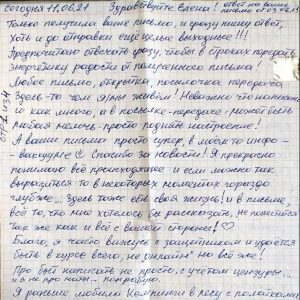 сегодня 11.06.21 Здравствуйте Елена! ответ на ваше
письмо от 03.06.21
Только получила ваше письмо, и сразу пишу ответ,
Хоть и до отправки ещё целые выходные!!!
Предпочитаю отвечать сразу, чтобы в строках передать
энергетику радости от полученного письма!
Любое письмо, открытка, посылочка передачка
Здесь-то чем я/мы живём! Неважно что написано
и как много, а в посылке-передаче - может быть
любая мелочь - просто поднять настроение!
А ваши письма просто супер, в моём то инфо-
вакууме Спасибо за новости! Я прекрасно
понимаю всё происходящее и если можно так
выразиться то в некоторых моментах гораздо
глубже.. Здесь тоже есть своя жизнь! и в письме,
всё то, что мне хотелось бы рассказать, не поместится
так же как и всё с вашей стороны!
Благо, я часто вижусь с защитником и удается
быть в курсе всего, не онлайн но всё же!
Про быт написать не просто, с учетом цензуры...
и не про пытки... попробую.
Я раньше любила Кемпинги в лесу с палатками
стр 1 из 4